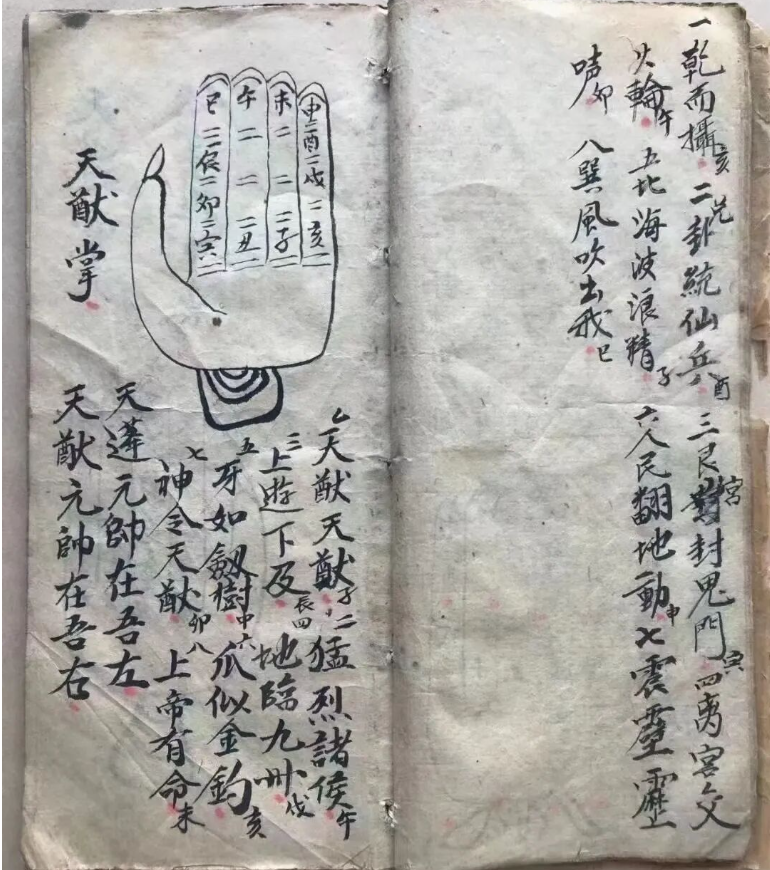 一乾而攝亥二兌卦統仙兵酉三艮宮封鬼門寅四离宮交
火輪午五北海波浪精子六人民翻地動申七震霹靂
声卯八巽風吹出我巳
申二酉二戌二亥二
未二二二子二
午二二二丑二
巳二二辰二卯二寅二
天猷掌
乙天猷天猷子二猛烈諸侯午
三上遊下及辰四地臨九州戌
五牙如劔樹中六爪似金鈎亥
七神令天猷卯八上帝有命未
天蓬元帥在吾左
天猷元帥在吾右